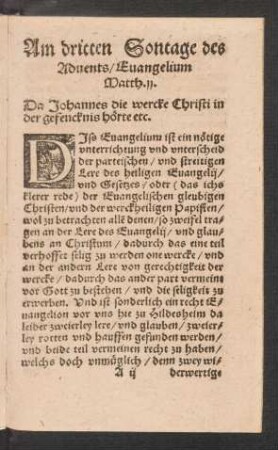 Am dritten Sontage des
Aduents/Euangelium
Matth.ij.
Da Johannes die wercke Christi in
der gefencknis hörte etc.
DIss Euangelium ist ein nötige
vnterrichtung vnd vnterscheid
der parteischen/ vnd streitigen
Lere des heiligen Euangelij/
vnd Gesetzes/ oder (das ichs
klerer rede) der Euangelischen gleubigen
Christen/ vnd der werckheiligen Papisten/
wol zu betrachten alle denen/ so zweifel tra-
gen an der Lere des Euangelij/ vnd glau-
bens an Christum/ dadurch das eine teil
verhoffet selig zu werden one wercke/ vnd
an der andern Lere von gerechtigkeit der
wercke/ dadurch das ander part vermeint
vor Gott zu bestehen/ vnd die seligkeit zu
erwerben. Vnd ist sonderlich ein recht E-
uangelion vor vns hie zu Hildesheim da
leider zweierley lere/ vnd glauben/ zweier-
ley rotten vnd hauffen gefunden werden/
vnd beide teil vermeinen recht zu haben/
welchs doch vnmüglich/ denn zwey wi-
A ij derwertige